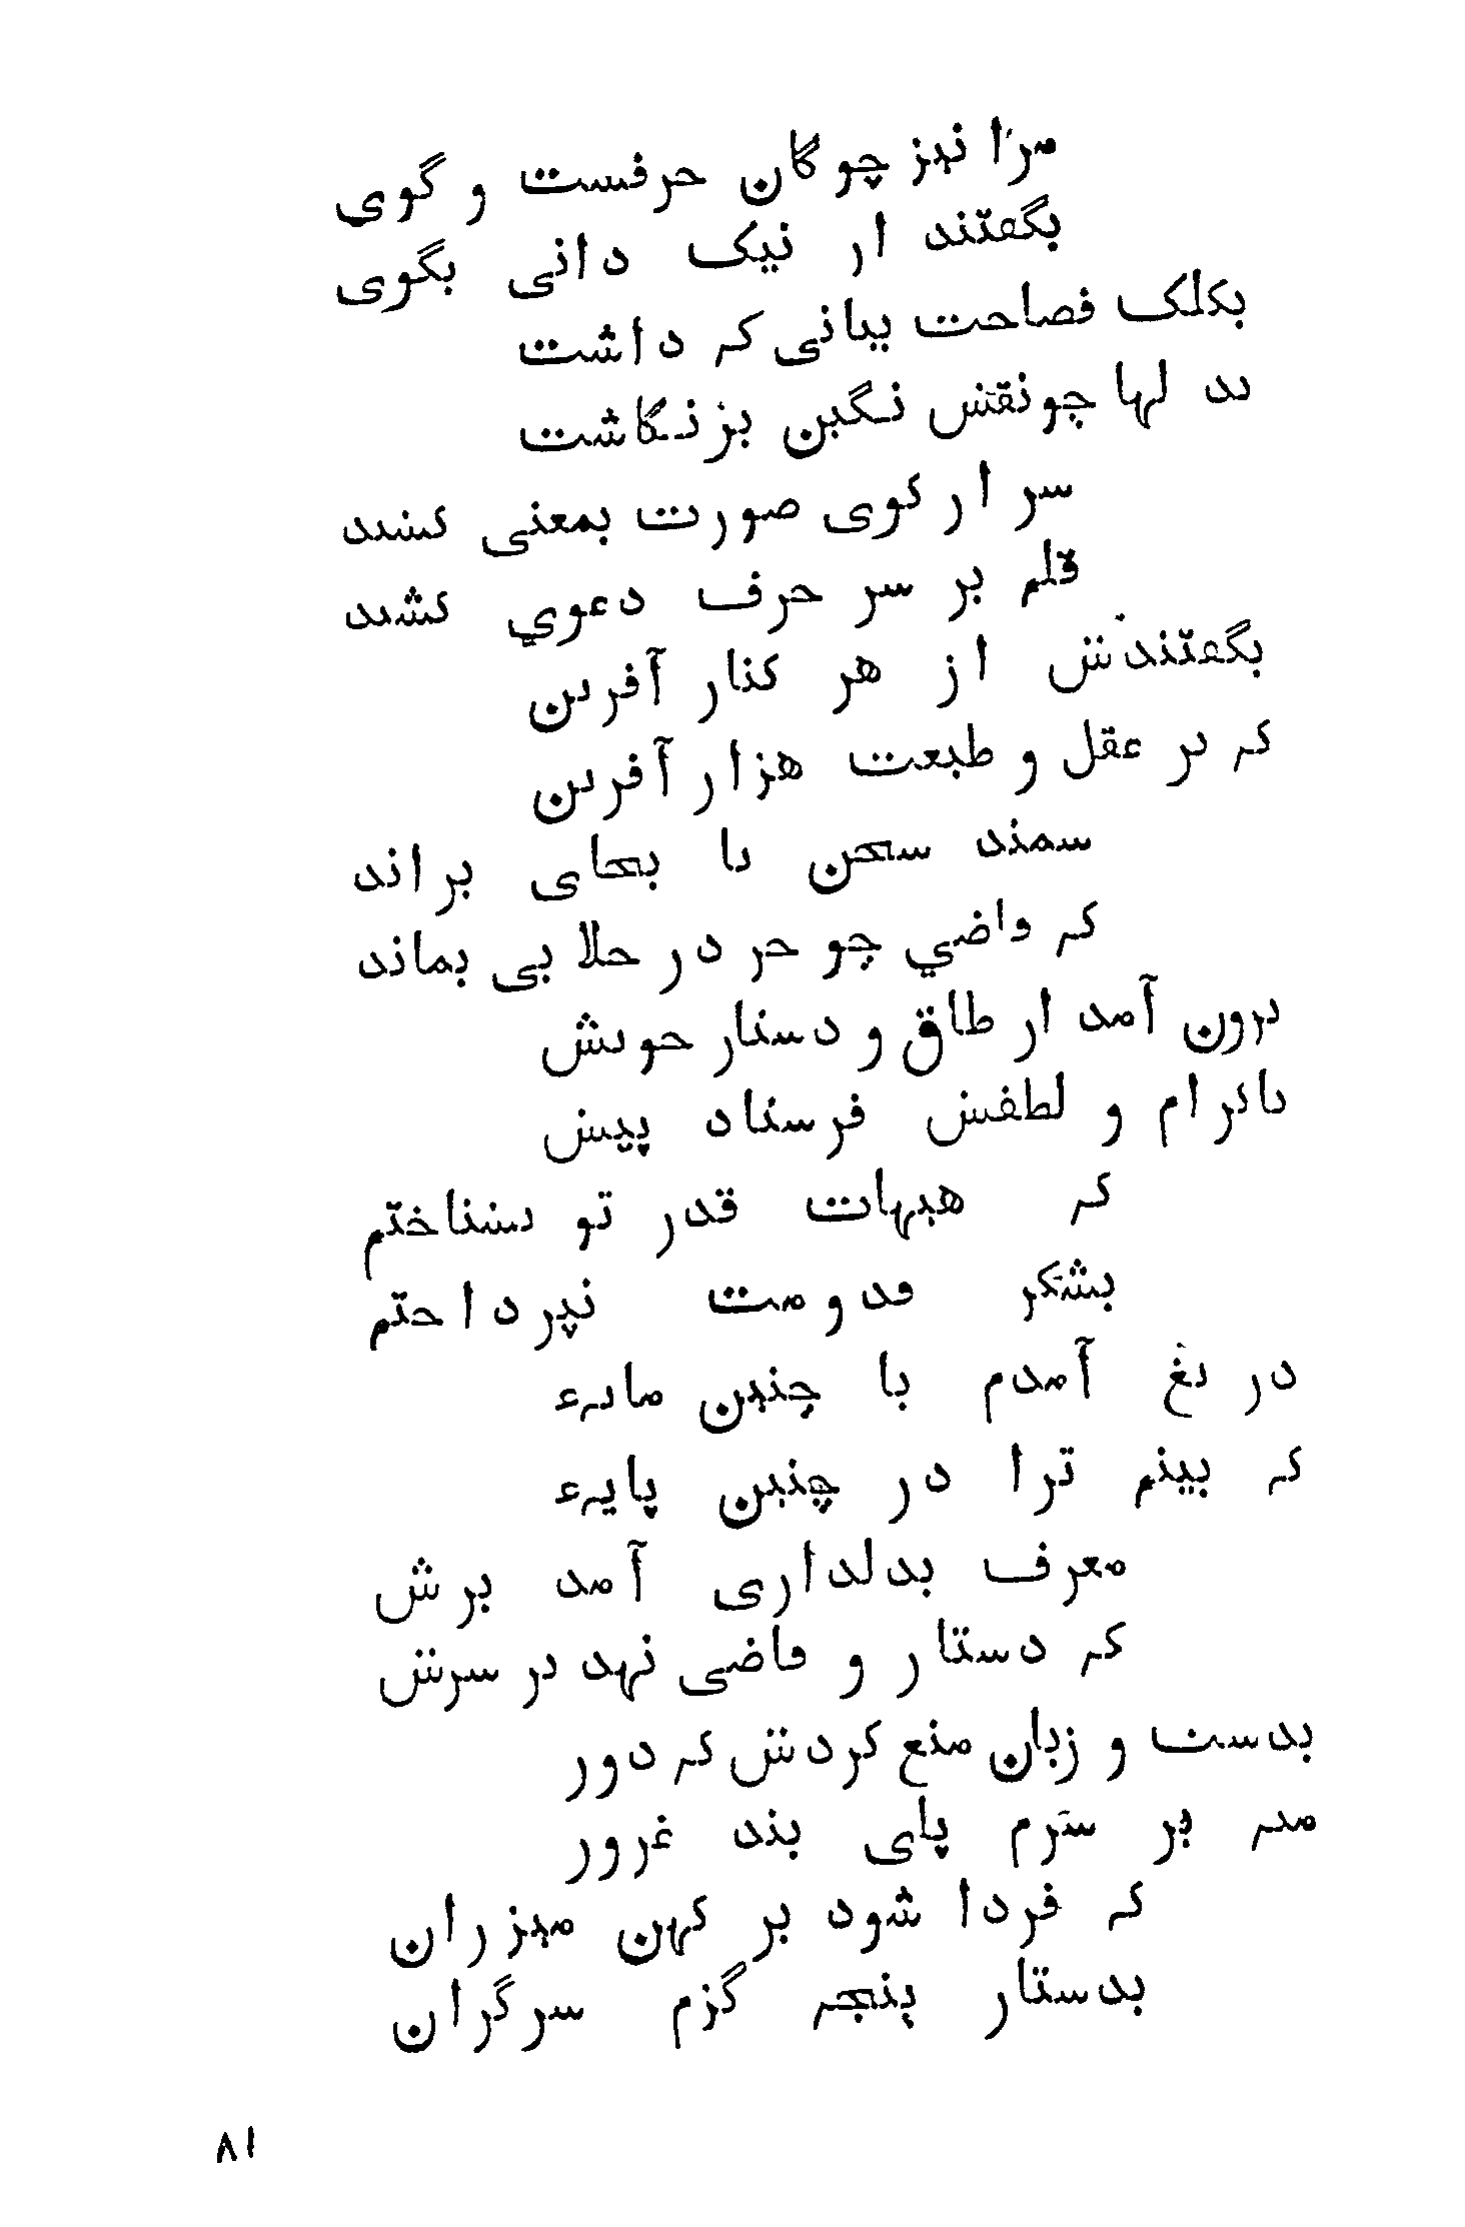 مرا نیز چوگان حرفست و گوی
بگفتند ار نیک دانی بگوی
بکلک فصاحت بیانی که داشت
بد لها چونقش نگین بر نگاشت
سر از کوی صورت بمعنی کشید
قلم بر سر حرف دعوي کشید
بگفتندش از هر کنار آفرین
که بر عقل و طبعت هزار آفرین
سمند سخن تا بجای براند
که قاضي چو خر در خلا بی بماند
برون آمد از طاق و دستار خویش
باکرام و لطفش فرستاد پیش
که هیهات قدر تو نشناختم
بشکر قدومت نپرداختم
دریغ آمدم با چنین مایهء
که بینم ترا در چنین پایهء
معرف بدلداری آمد برش
که دستار و قاضی نهد بر سرش
بدست و زبان منع کردش که دور
منه بر سرم پای بند غرور
که فردا شود بر کهن میزران
بدستار پنجه گزم سرگران
۸۱